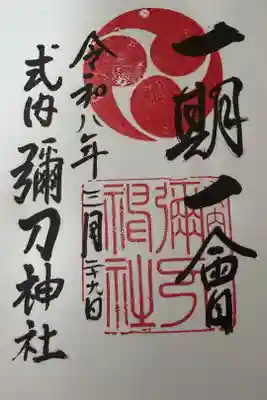 一期一會
令和八年三月二十九日
式内彌刀神社
彌刀
神社